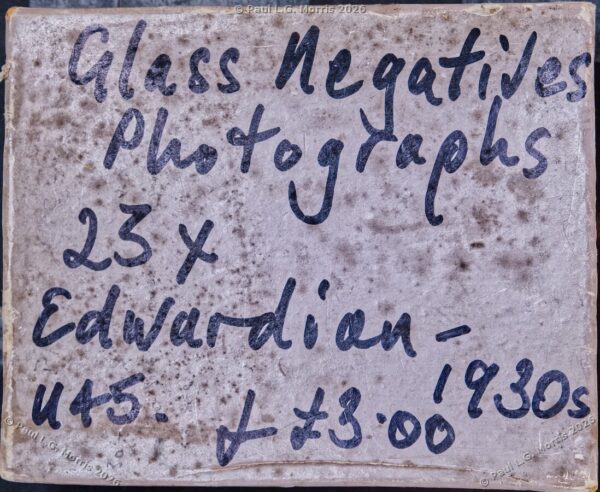 © Paul L.G. Morris 2026
Glass Negatives
Photographs
23 x
Edwardian -
1930s
U45. £ £3.00
© Paul L.G. Morris 2026
© Paul L.G. Morris 2026